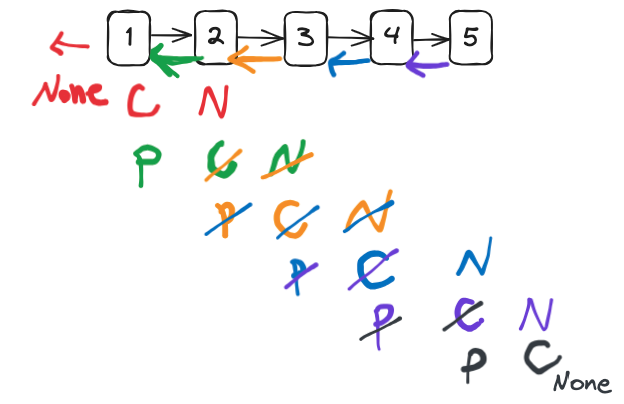 1 2 3 4 5
None C N
P C N
P C N
P C N
P C N
P C
None